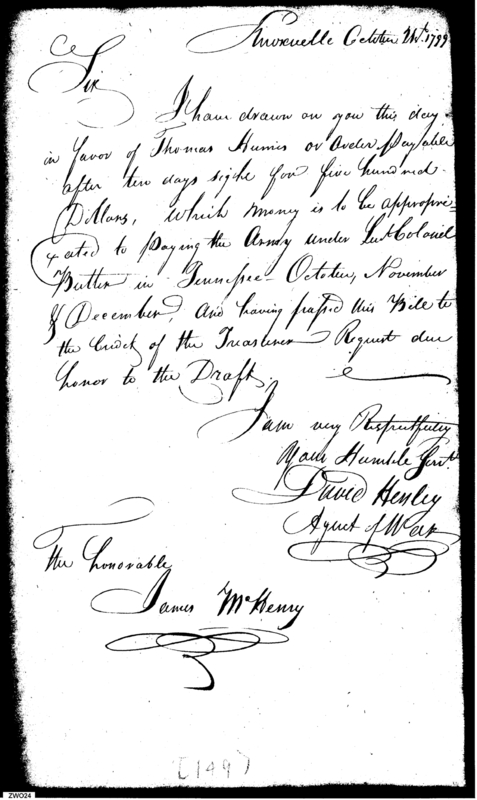 Knoxville October 24th. 1799
Sir
I have drawn on you this day
in favor of Thomas Humes or Order payable
after ten days sight for five hundred
Dollars, which money is to be appropri-
ated to paying the Army under Lut Colonel
Butler in Tennessee - October, November
& December, and having passed this Bill to
the Credit of the Treasurer Request due
honor to the Draft.
I am very Respectfully
Your Humble Servt.
David Henley
Agent of War
The honorable
James McHenry
[149]
ZWO24